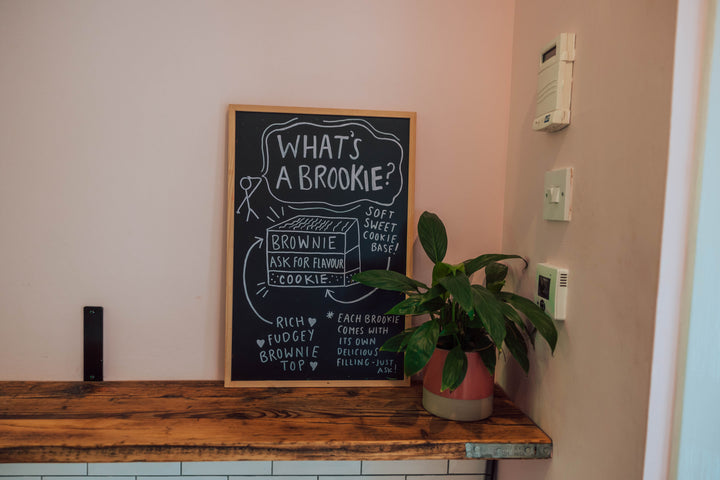 WHAT'S
A BROOKIE?
SOFT
SWEET
COOKIE
BASE!
BROWNIE
ASK FOR FLAVOUR
COOKIE
RICH
FUDGEY
BROWNIE
TOP
* EACH BROOKIE
COMES WITH
ITS OWN
DELICIOUS
FILLING - JUST
ASK!